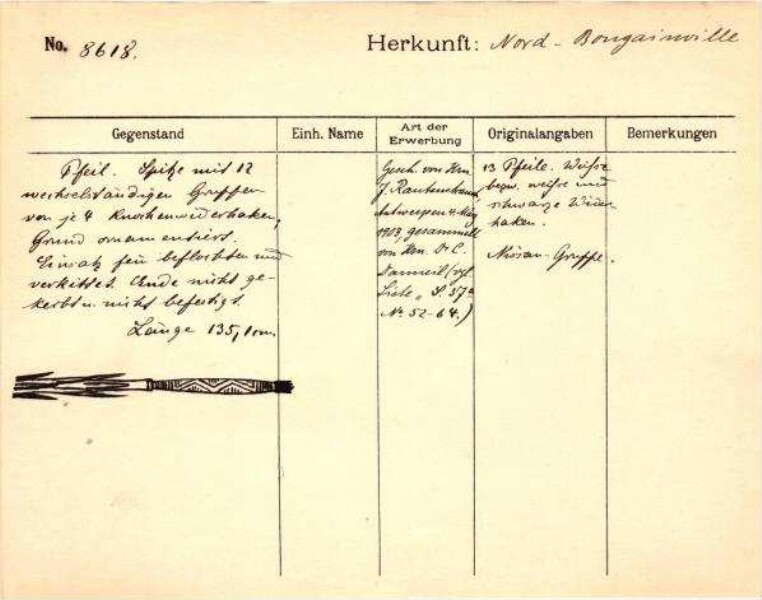 No. 8618.
Herkunft: Nord-Bougainville
Gegenstand
Einh. Name
Art der Erwerbung
Originalangaben
Bemerkungen
Pfeil. Spitze mit 12
wechselständigen Gruppen
von je 4 Knochenwiderhaken,
Grund ornamentiert.
Einsatz fein beflochten und
verkittet. Ende nicht ge-
kerbt u. nicht befestigt.
Länge 135,1 cm.
Gesch. von Hrn.
J. Rautenstrauch,
Antwerpen 4. März
1903, gesammelt
von Hrn. Dr C.
Danneil (vgl.
Liste „ S. 57a
No 52-64.)
13 Pfeile. Weisse
bezw. weisse und
schwarze Wider
haken.
Nissan-Gruppe.